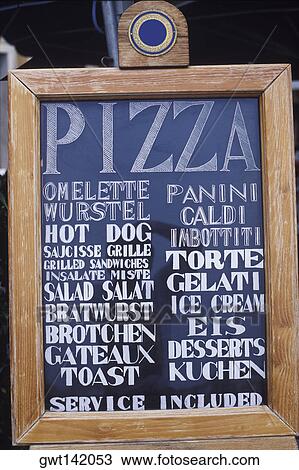 PIZZA
OMELETTE
WURSTEL
HOT DOG
SAJCISSE GRILLE
GRILLED SANDWICHES
INSALATE MISTE
SALAD SALAT
BRATWURST
BROTCHEN
GATEAUX
TOAST
PANINI
CALDI
IMBOTTITI
TORTE
GELATI
ICE CREAM
EIS
DESSERTS
KUCHEN
SERVICE INCLUDED
Fotosearch
gwt142053 www.fotosearch.com